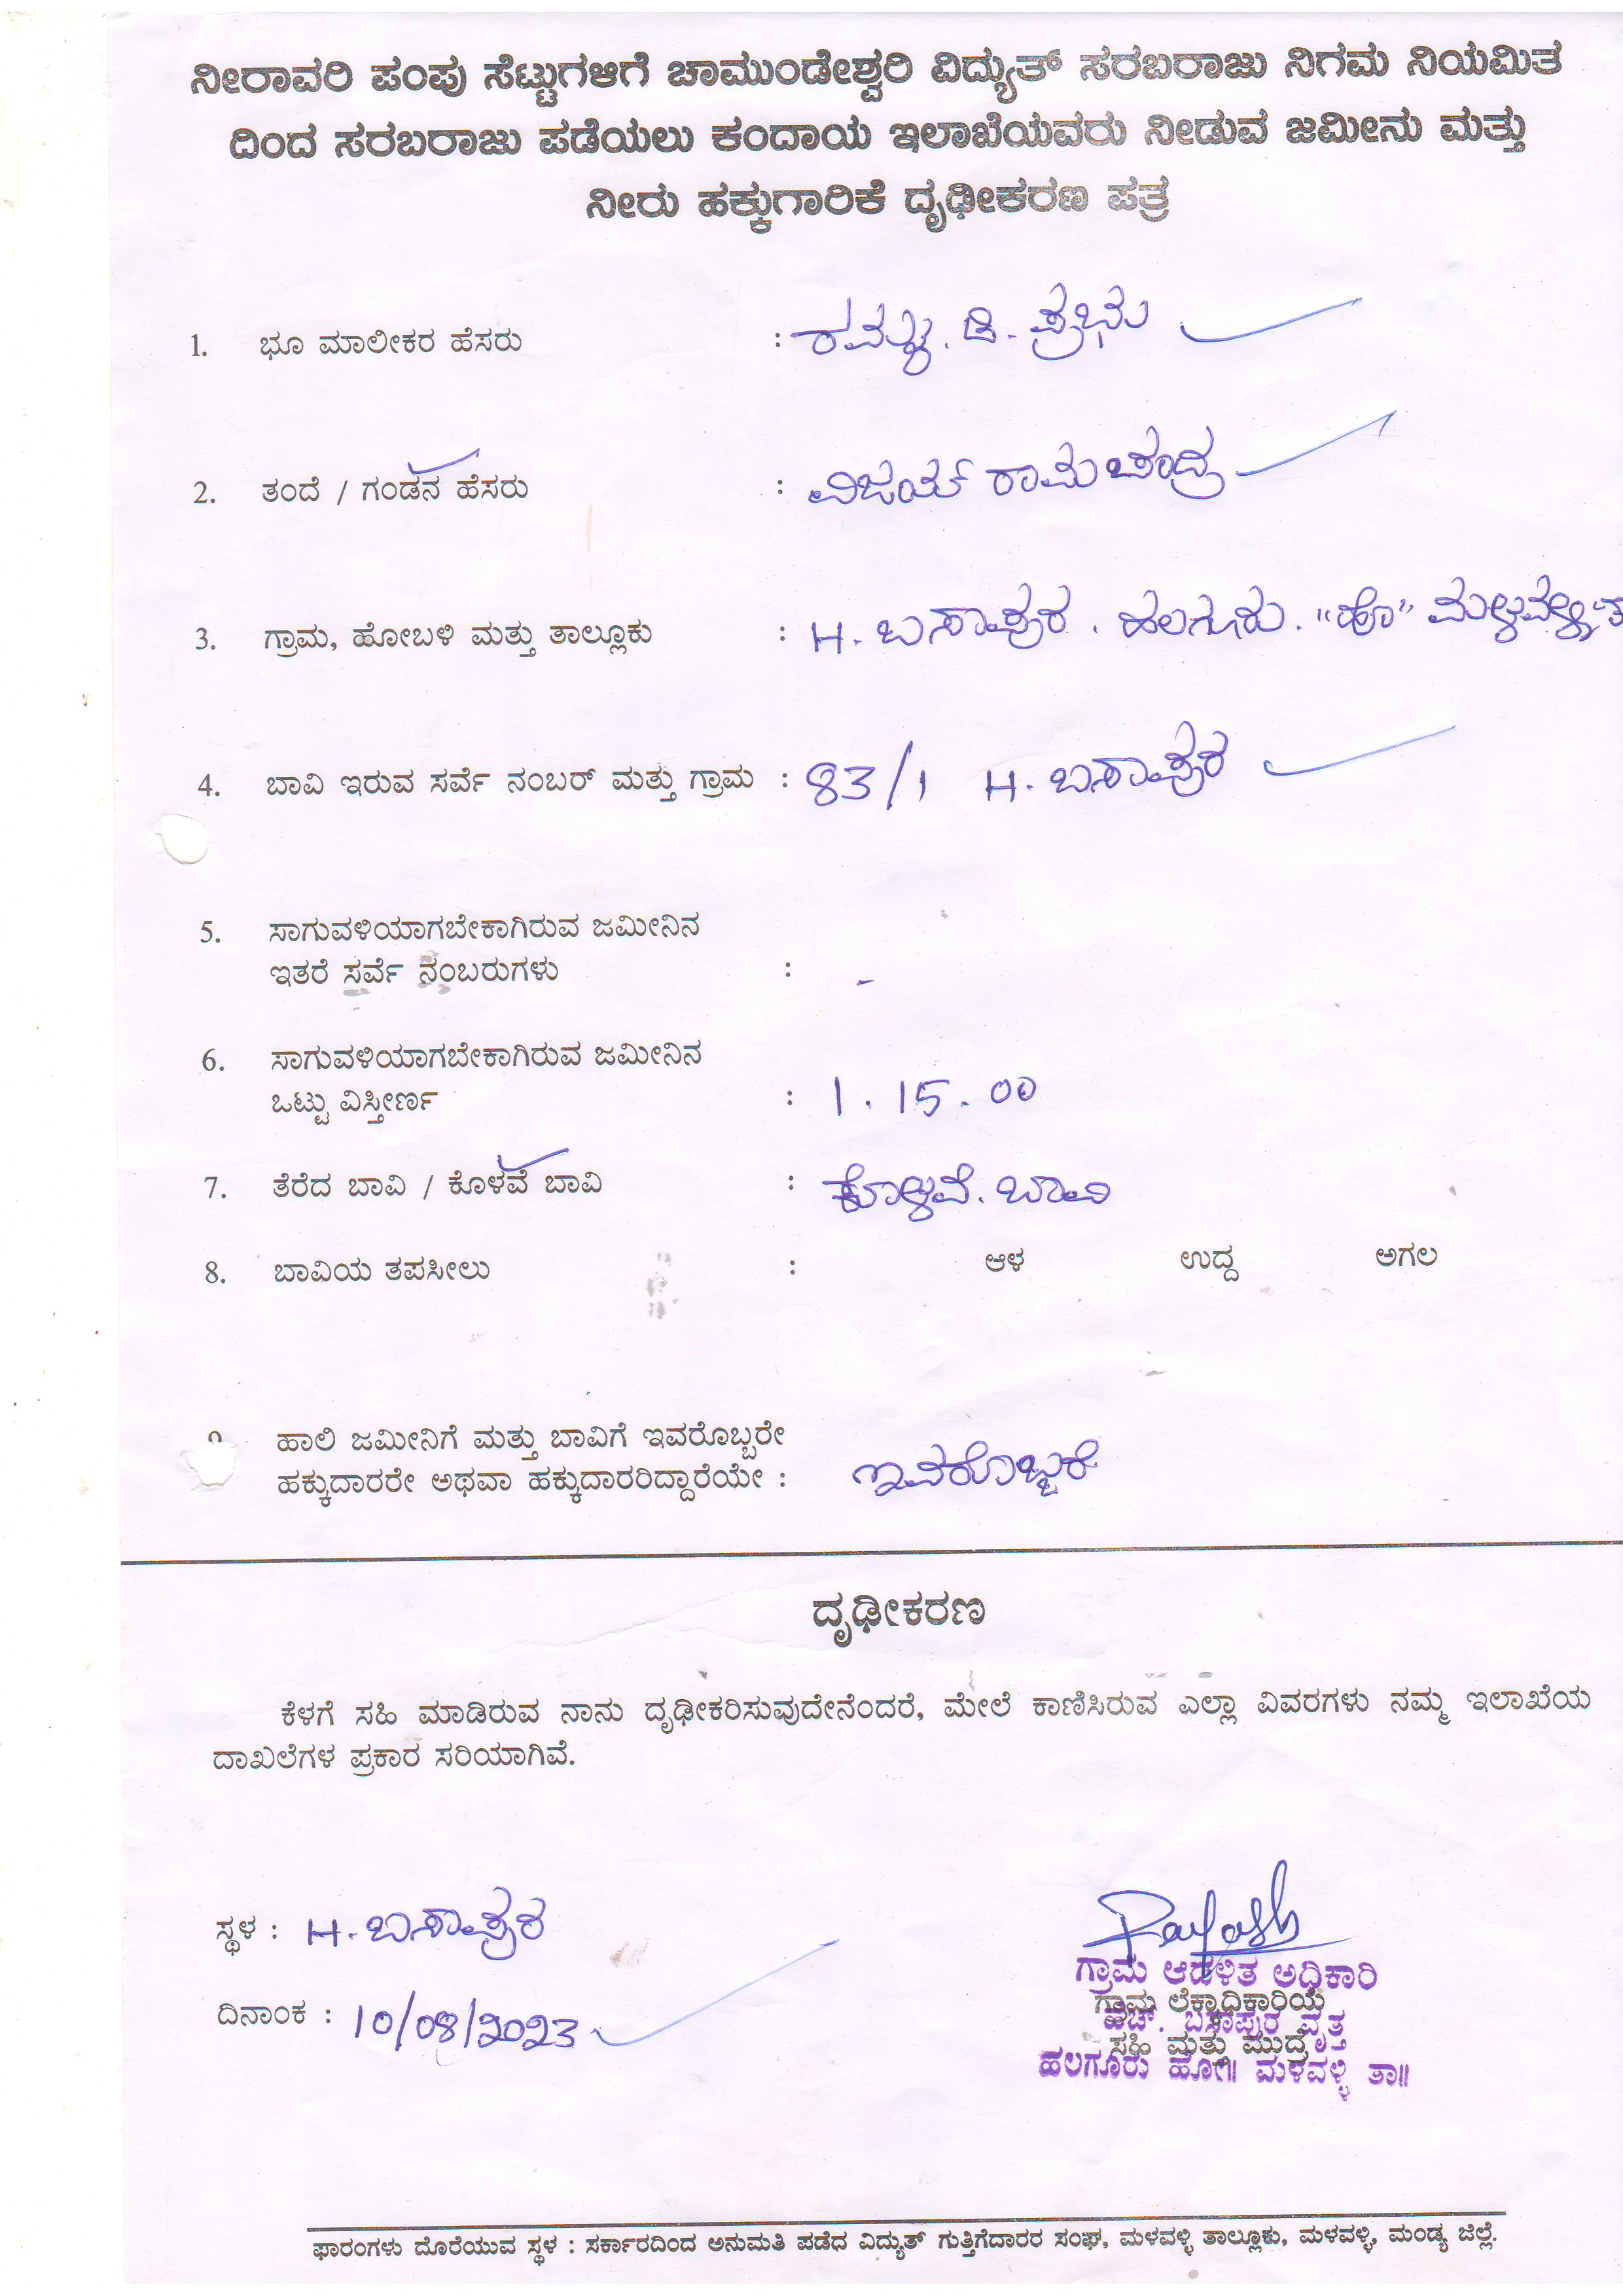 ನೀರಾವರಿ ಪಂಪು ಸೆಟ್ಟುಗಳಿಗೆ ಚಾಮುಂಡೇಶ್ವರಿ ವಿದ್ಯುತ್ ಸರಬರಾಜು ನಿಗಮ ನಿಯಮಿತ
ದಿಂದ ಸರಬರಾಜು ಪಡೆಯಲು ಕಂದಾಯ ಇಲಾಖೆಯವರು ನೀಡುವ ಜಮೀನು ಮತ್ತು
ನೀರು ಹಕ್ಕುಗಾರಿಕೆ ದೃಢೀಕರಣ ಪತ್ರ
1. ಭೂ ಮಾಲೀಕರ ಹೆಸರು : ರಮ್ಯ. ಡಿ. ಪ್ರಭು
2. ತಂದೆ / ಗಂಡನ ಹೆಸರು : ವಿಜಯ್ ರಾಮಚಂದ್ರ
3. ಗ್ರಾಮ, ಹೋಬಳಿ ಮತ್ತು ತಾಲ್ಲೂಕು : H. ಬಸಾಪುರ. ಹಲಗೂರು. "ಹೋ" ಮಳವಳ್ಳಿ
4. ಬಾವಿ ಇರುವ ಸರ್ವೆ ನಂಬರ್ ಮತ್ತು ಗ್ರಾಮ : 83/1 H. ಬಸಾಪುರ
5. ಸಾಗುವಳಿಯಾಗಬೇಕಾಗಿರುವ ಜಮೀನಿನ
ಇತರೆ ಸರ್ವೆ ನಂಬರುಗಳು : -
6. ಸಾಗುವಳಿಯಾಗಬೇಕಾಗಿರುವ ಜಮೀನಿನ
ಒಟ್ಟು ವಿಸ್ತೀರ್ಣ : 1. 15. 00
7. ತೆರೆದ ಬಾವಿ / ಕೊಳವೆ ಬಾವಿ : ಕೊಳವೆ. ಬಾವಿ
8. ಬಾವಿಯ ತಪಸೀಲು : ಆಳ ಉದ್ದ ಅಗಲ
ಹಾಲಿ ಜಮೀನಿಗೆ ಮತ್ತು ಬಾವಿಗೆ ಇವರೊಬ್ಬರೇ
ಹಕ್ಕುದಾರರೇ ಅಥವಾ ಹಕ್ಕುದಾರರಿದ್ದಾರೆಯೇ : ಇವರೊಬ್ಬರೆ
ದೃಢೀಕರಣ
ಕೆಳಗೆ ಸಹಿ ಮಾಡಿರುವ ನಾನು ದೃಢೀಕರಿಸುವುದೇನೆಂದರೆ, ಮೇಲೆ ಕಾಣಿಸಿರುವ ಎಲ್ಲಾ ವಿವರಗಳು ನಮ್ಮ ಇಲಾಖೆಯ
ದಾಖಲೆಗಳ ಪ್ರಕಾರ ಸರಿಯಾಗಿವೆ.
ಸ್ಥಳ : H. ಬಸಾಪುರ
ದಿನಾಂಕ : 10/08/2023
ಗ್ರಾಮ ಆಡಳಿತ ಅಧಿಕಾರಿ
ಗ್ರಾಮ ಲೆಕ್ಕಾಧಿಕಾರಿಯ
ಹೆಚ್. ಬಸಾಪುರ ವೃತ್ತ
ಸಹಿ ಮತ್ತು ಮುದ್ರೆ
ಹಲಗೂರು ಹೋ॥ ಮಳವಳ್ಳಿ ತಾ॥
ಫಾರಂಗಳು ದೊರೆಯುವ ಸ್ಥಳ : ಸರ್ಕಾರದಿಂದ ಅನುಮತಿ ಪಡೆದ ವಿದ್ಯುತ್ ಗುತ್ತಿಗೆದಾರರ ಸಂಘ, ಮಳವಳ್ಳಿ ತಾಲ್ಲೂಕು, ಮಳವಳ್ಳಿ, ಮಂಡ್ಯ ಜಿಲ್ಲೆ.